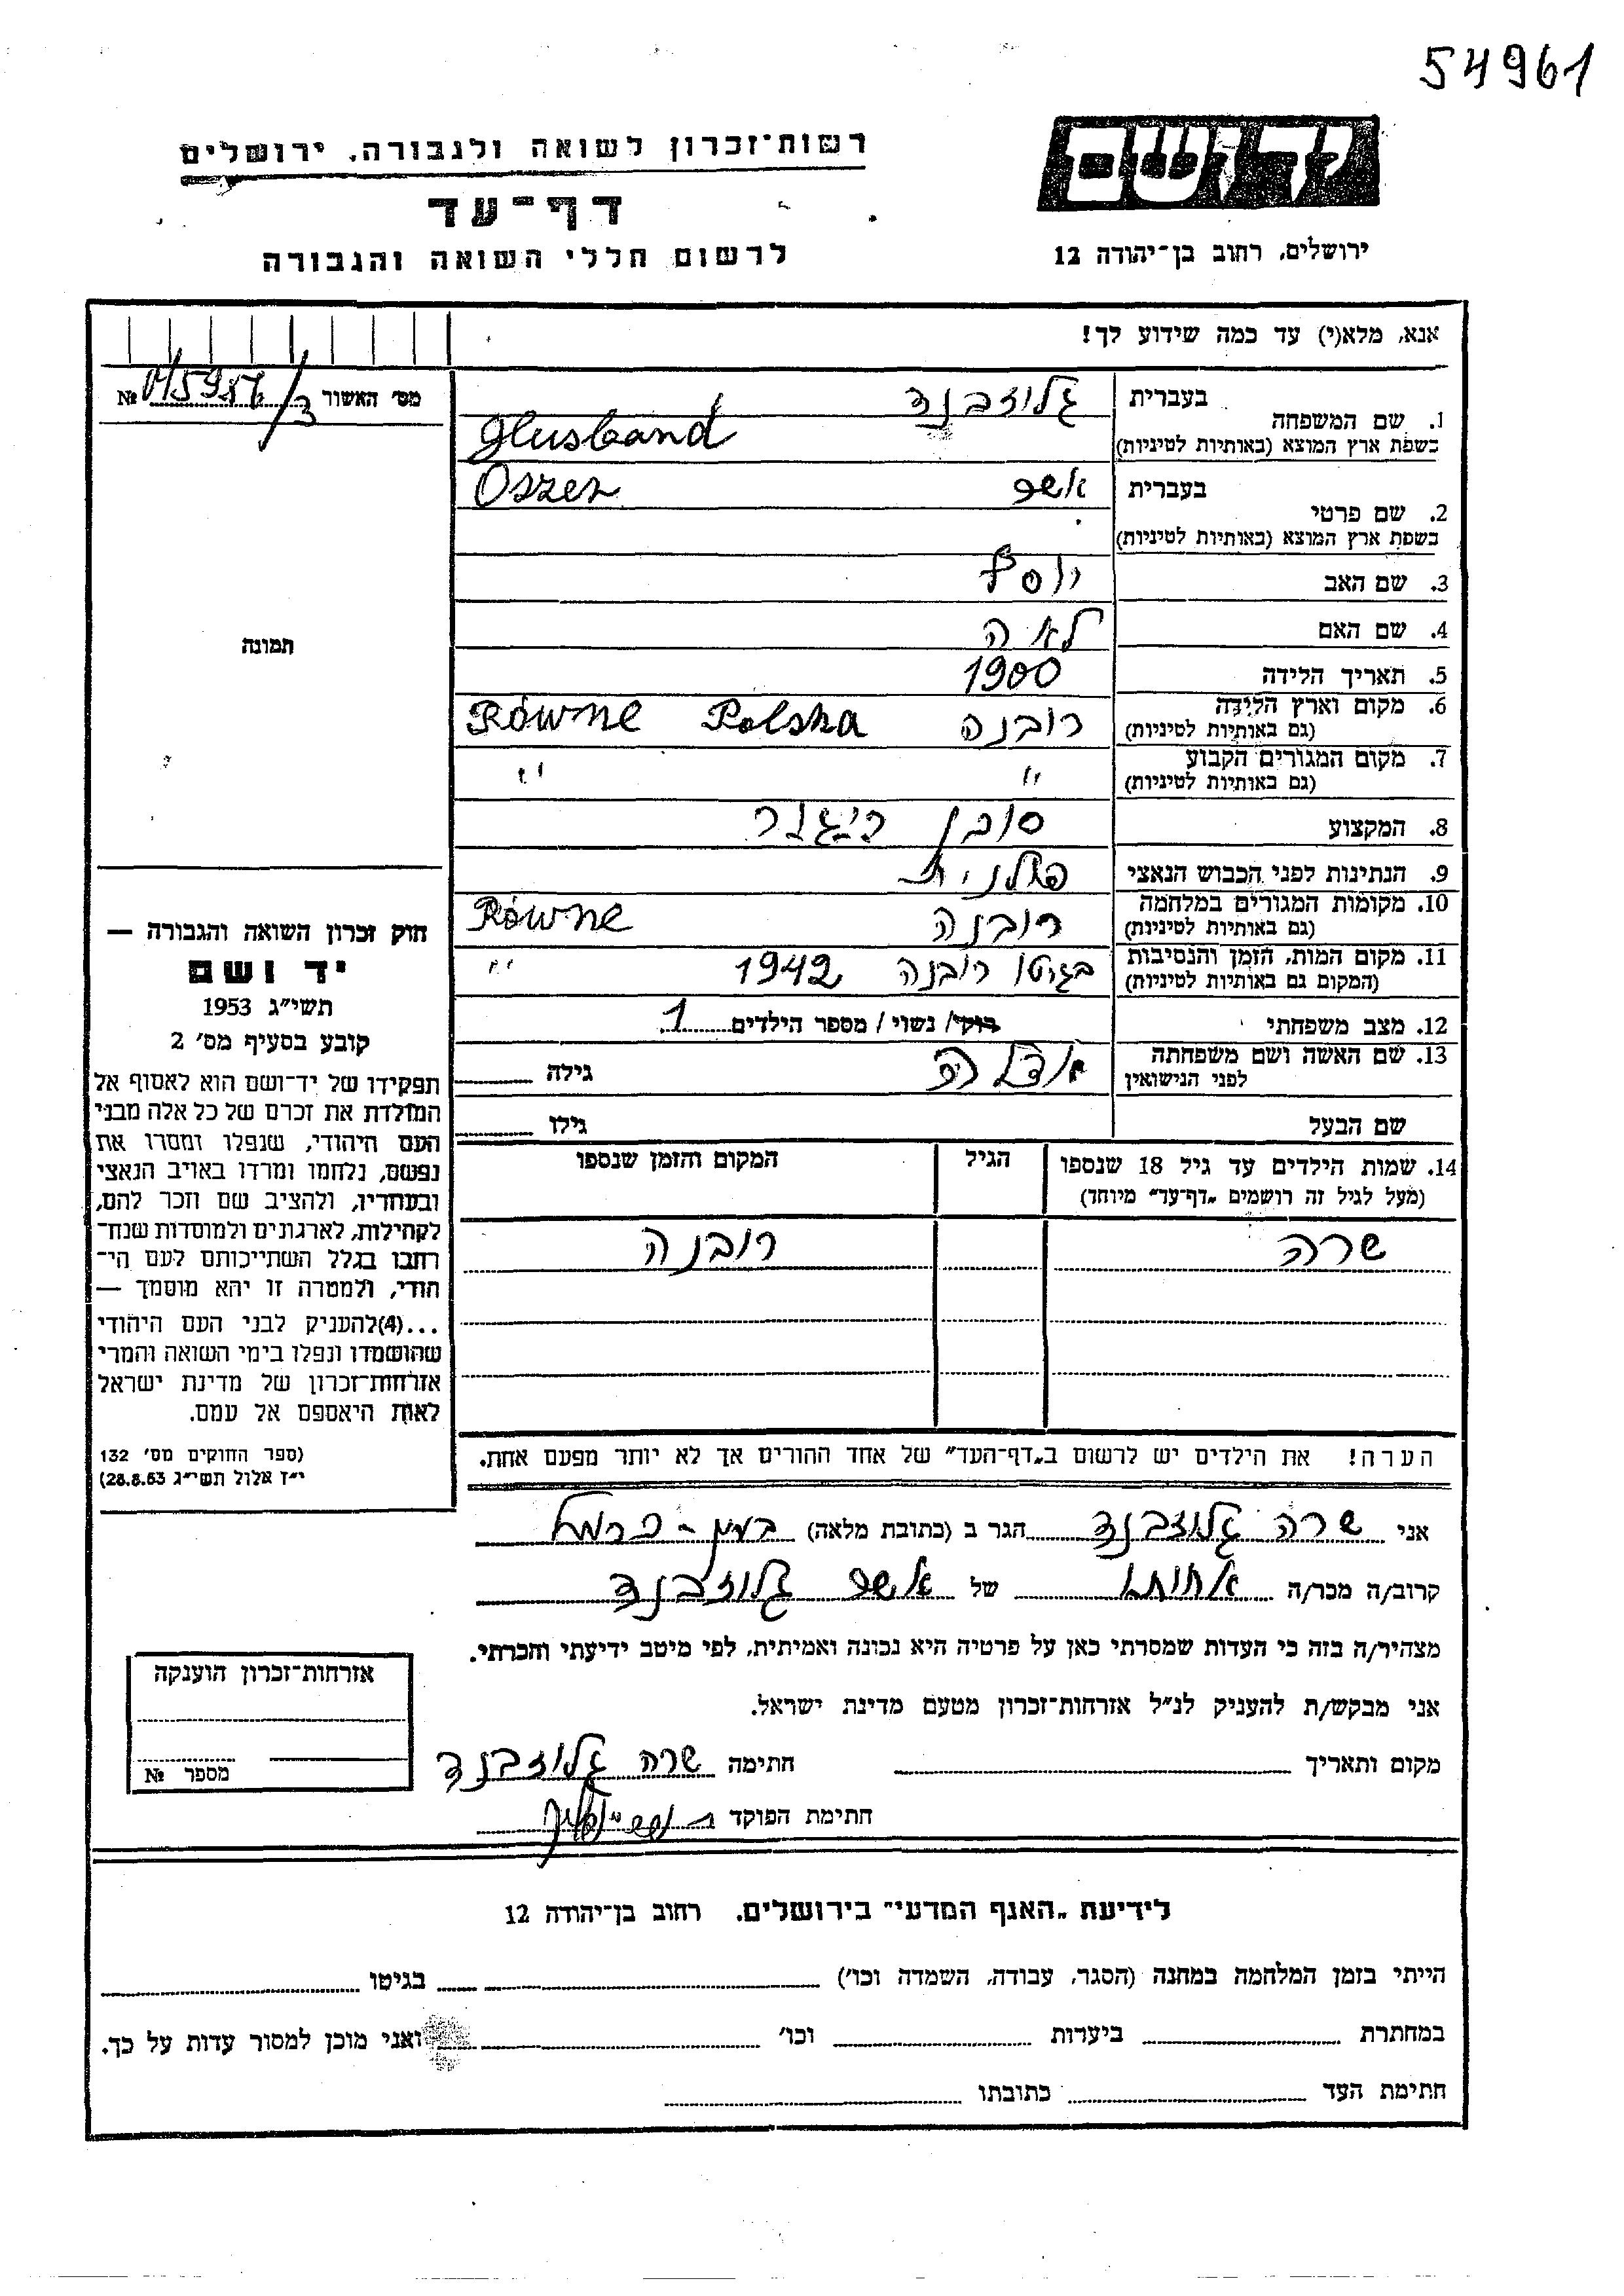 54961
יד ושם
רשות־זכרון לשואה ולגבורה, ירושלים
דף־עד
לרשום חללי השואה והגבורה
ירושלים, רחוב בן־יהודה 12
אנא, מלא(י) עד כמה שידוע לך!
מס׳ האשור №
1. שם המשפחה
בעברית גלוזבנד
בשפת ארץ המוצא (באותיות לטיניות) Glusband
2. שם פרטי
בעברית אשר Oszer
בשפת ארץ המוצא (באותיות לטיניות)
3. שם האב יוסף
4. שם האם לאה
5. תאריך הלידה 1900
6. מקום וארץ הלידה רובנה Równe Polska
(גם באותיות לטיניות)
7. מקום המגורים הקבוע " "
(גם באותיות לטיניות)
8. המקצוע סוכן
9. הנתינות לפני הכבוש הנאצי פולנית
10. מקומות המגורים במלחמה רובנה Równe
(גם באותיות לטיניות)
11. מקום המות, הזמן והנסיבות בגיטו רובנה 1942 "
(המקום גם באותיות לטיניות)
12. מצב משפחתי רוקי/ נשוי / מספר הילדים 1
13. שם האשה ושם משפחתה
לפני הנישואין גילה
שם הבעל גילו
14. שמות הילדים עד גיל 18 שנספו הגיל המקום והזמן שנספו
(מעל לגיל זה רושמים „דף־עד״ מיוחד)
שרה רובנה
הערה! את הילדים יש לרשום ב„דף־העד״ של אחד ההורים אך לא יותר מפעם אחת.
תמונה
חוק זכרון השואה והגבורה —
יד ושם
תשי״ג 1953
קובע בסעיף מס׳ 2
תפקידו של יד־ושם הוא לאסוף אל
המולדת את זכרם של כל אלה מבני
העם היהודי, שנפלו ומסרו את
נפשם, נלחמו ומרדו באויב הנאצי
ובעוזריו, ולהציב שם וזכר להם,
לקהילות, לארגונים ולמוסדות שנח־
רבו בגלל השתייכותם לעם הי־
הודי, ולמטרה זו יהא מוסמך —
...(4)להעניק לבני העם היהודי
שהושמדו ונפלו בימי השואה והמרי
אזרחות־זכרון של מדינת ישראל
לאות היאספם אל עמם.
(ספר החוקים מס׳ 132
י״ז אלול תשי״ג 28.8.53)
אני שרה גלוזבנד הגר ב (כתובת מלאה) בעין-כרמל
קרוב/ה מכר/ה אחותו של אשר גלוזבנד
מצהיר/ה בזה כי העדות שמסרתי כאן על פרטיה היא נכונה ואמיתית, לפי מיטב ידיעתי והכרתי.
אני מבקש/ת להעניק לנ״ל אזרחות־זכרון מטעם מדינת ישראל.
מקום ותאריך חתימה שרה גלוזבנד
חתימת הפוקד
אזרחות־זכרון הוענקה
מספר №
לידיעת „האגף המדעי״ בירושלים, רחוב בן־יהודה 12
הייתי בזמן המלחמה במחנה (הסגר, עבודה, השמדה וכו׳) בגיטו
במחתרת ביערות וכו׳ ואני מוכן למסור עדות על כך.
חתימת העד כתובתו